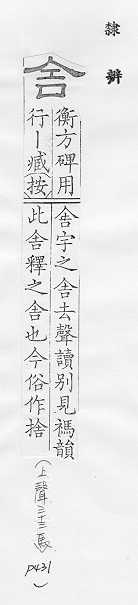 隸辨
舍
衡方碑用
行丨臧按
舍字之舍去聲讀别見禡韻
此舍釋之舍也今俗作捨
(上聲三十三馬 P431)